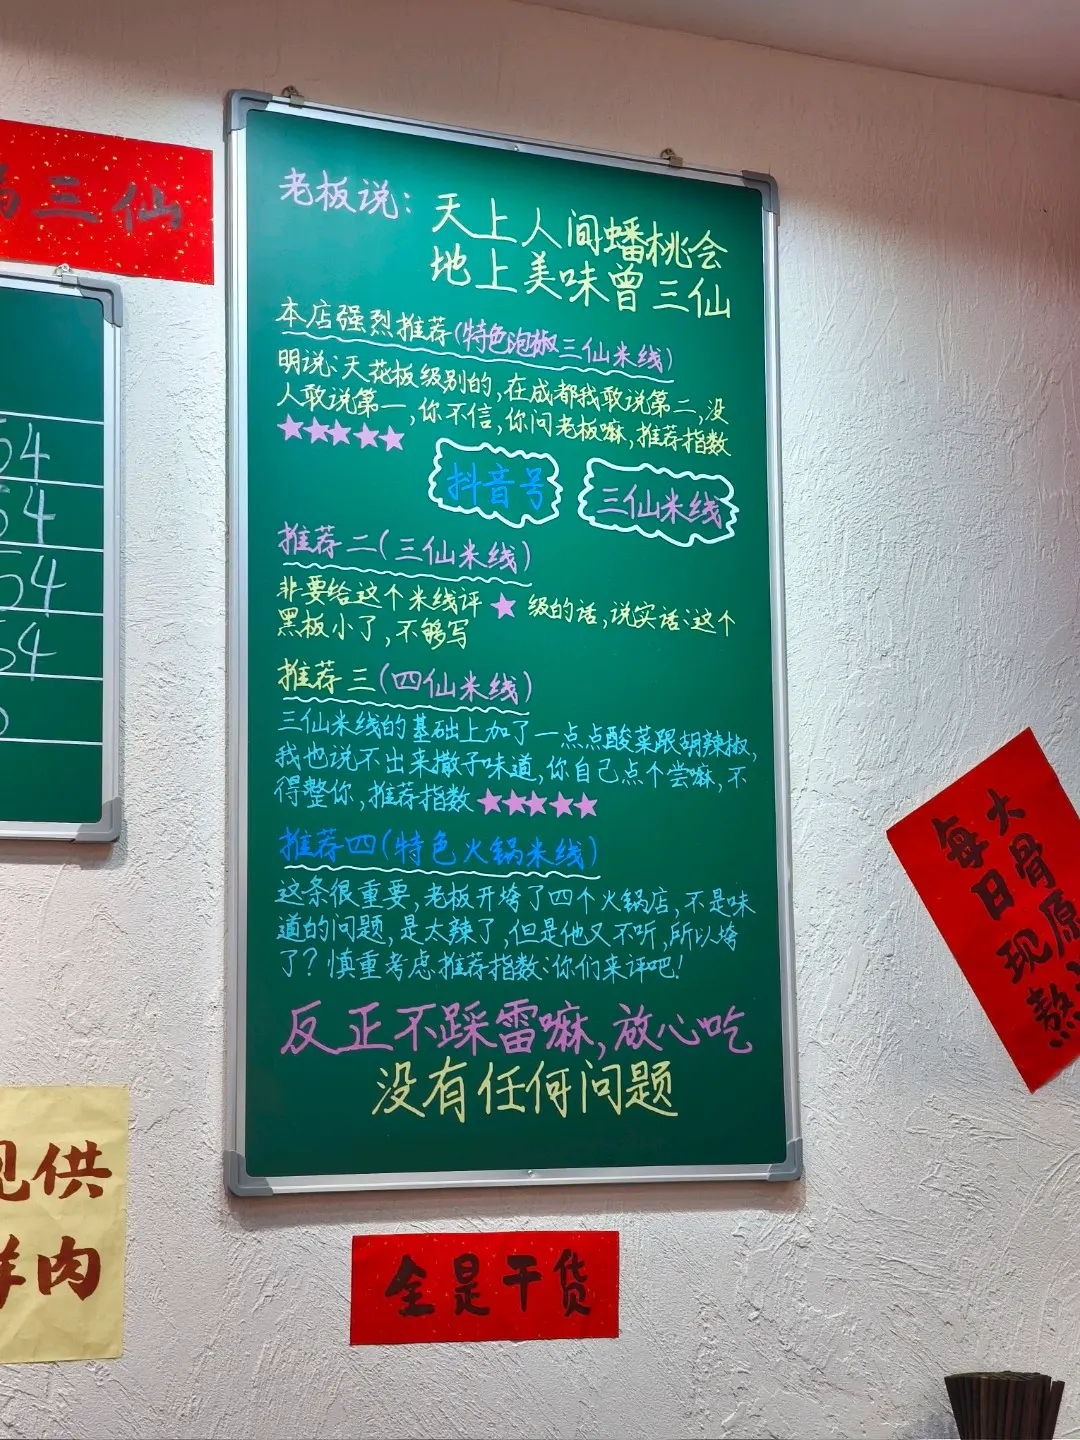 三仙
54
54
54
54
老板说：
天上人间蟠桃会
地上美味曾三仙
本店强烈推荐(特色泡椒三仙米线)
明说：天花板级别的，在成都我敢说第二，没
人敢说第一，你不信，你问老板嘛，推荐指数
★★★★★
抖音号
三仙米线
推荐二(三仙米线)
非要给这个米线评★级的话，说实话：这个
黑板小了，不够写
推荐三(四仙米线)
三仙米线的基础上加了一点点酸菜跟胡辣椒，
我也说不出来撒子味道，你自己点个尝嘛，不
得整你，推荐指数★★★★★
推荐四(特色火锅米线)
这条很重要，老板开垮了四个火锅店，不是味
道的问题，是太辣了，但是他又不听，所以垮
了？慎重考虑推荐指数：你们来评吧！
反正不踩雷嘛，放心吃
没有任何问题
大骨原
每日现熬
现供
羊肉
全是干货